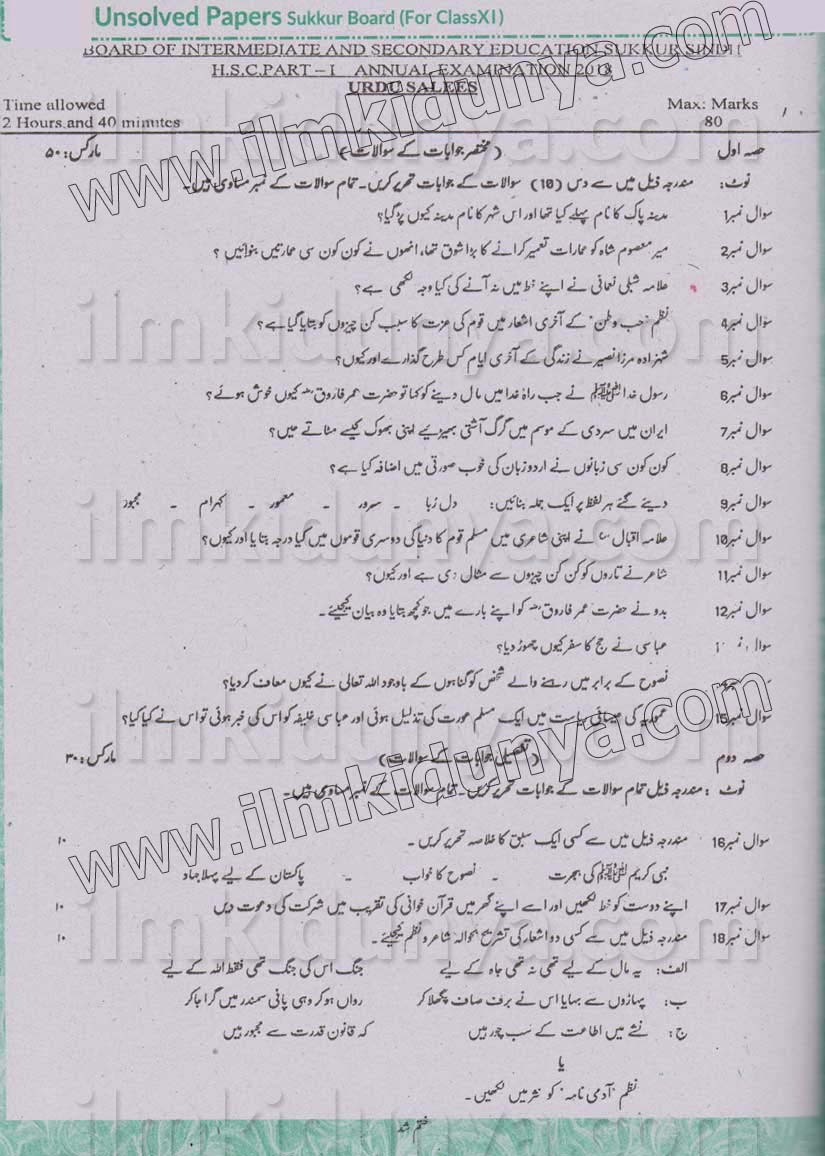 Unsolved Papers Sukkur Board (For ClassXI)
BOARD OF INTERMEDIATE AND SECONDARY EDUCATION SUKKUR SINDH
H.S.C.PART – I ANNUAL EXAMINATION 2018
URDU SALEES
Time allowed Max: Marks
2 Hours and 40 minutes 80
حصہ اول (مختصر جوابات کے سوالات) مارکس: ۵۰
نوٹ: مندرجہ ذیل میں سے دس (10) سوالات کے جوابات تحریر کریں۔ تمام سوالات کے نمبر مساوی ہیں۔
سوال نمبر1 مدینہ پاک کا نام پہلے کیا تھا اور اس شہر کا نام مدینہ کیوں پڑ گیا؟
سوال نمبر2 میر معصوم شاہ کو عمارات تعمیر کرانے کا بڑا شوق تھا، انھوں نے کون کون سی عمارتیں بنوائیں ؟
سوال نمبر3 علامہ شبلی نعمانی نے اپنے خط میں نہ آنے کی کیا وجہ لکھی ہے؟
سوال نمبر4 نظم "حب وطن" کے آخری اشعار میں قوم کی عزت کا سبب کن چیزوں کو بتایا گیا ہے؟
سوال نمبر5 شہزادہ مرزا نصیر نے زندگی کے آخری ایام کس طرح گذارے اور کیوں؟
سوال نمبر6 رسول خدا ﷺ نے جب راہ خدا میں مال دینے کو کہا تو حضرت عمر فاروق کیوں خوش ہوئے؟
سوال نمبر7 ایران میں سردی کے موسم میں گرگ آشتی بھیڑئیے اپنی بھوک کیسے مٹاتے ہیں؟
سوال نمبر8 کون کون سی زبانوں نے اردو زبان کی خوب صورتی میں اضافہ کیا ہے؟
سوال نمبر9 دیئے گئے ہر لفظ پر ایک جملہ بنائیں: دل ربا - سرور - معمور - کہرام - مجبور
سوال نمبر10 علامہ اقبال نے اپنی شاعری میں مسلم قوم کا دنیا کی دوسری قوموں میں کیا درجہ بتایا اور کیوں؟
سوال نمبر11 شاعر نے تاروں کو کن کن چیزوں سے مثال دی ہے اور کیوں؟
سوال نمبر12 بدو نے حضرت عمر فاروق کو اپنے بارے میں جو کچھ بتایا وہ بیان کیجیئے۔
سوال عباسی نے حج کا سفر کیوں چھوڑ دیا؟
نصوح کے برابر میں رہنے والے شخص کو گناہوں کے باوجود اللہ تعالی نے کیوں معاف کر دیا؟
سوال نمبر15 عموریہ کی عیسائی ریاست میں ایک مسلم عورت کی تذلیل ہوئی اور عباسی خلیفہ کو اس کی خبر ہوئی تو اس نے کیا کیا؟
حصہ دوم (تفصیلی جوابات کے سوالات) مارکس: ۳۰
نوٹ : مندرجہ ذیل تمام سوالات کے جوابات تحریر کریں۔ تمام سوالات کے نمبر مساوی ہیں۔
سوال نمبر16 مندرجہ ذیل میں سے کسی ایک سبق کا خلاصہ تحریر کریں۔ ۱۰
نبی کریم ﷺ کی ہجرت - نصوح کا خواب - پاکستان کے لیے پہلا جہاد
سوال نمبر17 اپنے دوست کو خط لکھیں اور اسے اپنے گھر میں قرآن خوانی کی تقریب میں شرکت کی دعوت دیں ۱۰
سوال نمبر18 مندرجہ ذیل میں سے کسی دو اشعار کی تشریح بحوالہ شاعر و نظم کیجیئے۔ ۱۰
الف: یہ مال کے لیے تھی نہ تھی جاہ کے لیے جنگ اس کی جنگ تھی فقط اللہ کے لیے
ب: پہاڑوں سے بہایا اس نے برف صاف پگھلا کر رواں ہو کر وہی پانی سمندر میں گرا جا کر
ج: نشے میں اطاعت کے سب چور ہیں کہ قانون قدرت سے مجبور ہیں
یا
نظم "آدمی نامہ" کو نثر میں لکھیں۔
ختم شد
www.ilmkidunya.com
ilmkidunya.com
ilmkidunya.com
ilmkidunya.com
ilmkidunya.com
www.ilmkidunya.com
ilmkidunya.com
ilmkidunya.com
ilmkidunya.com